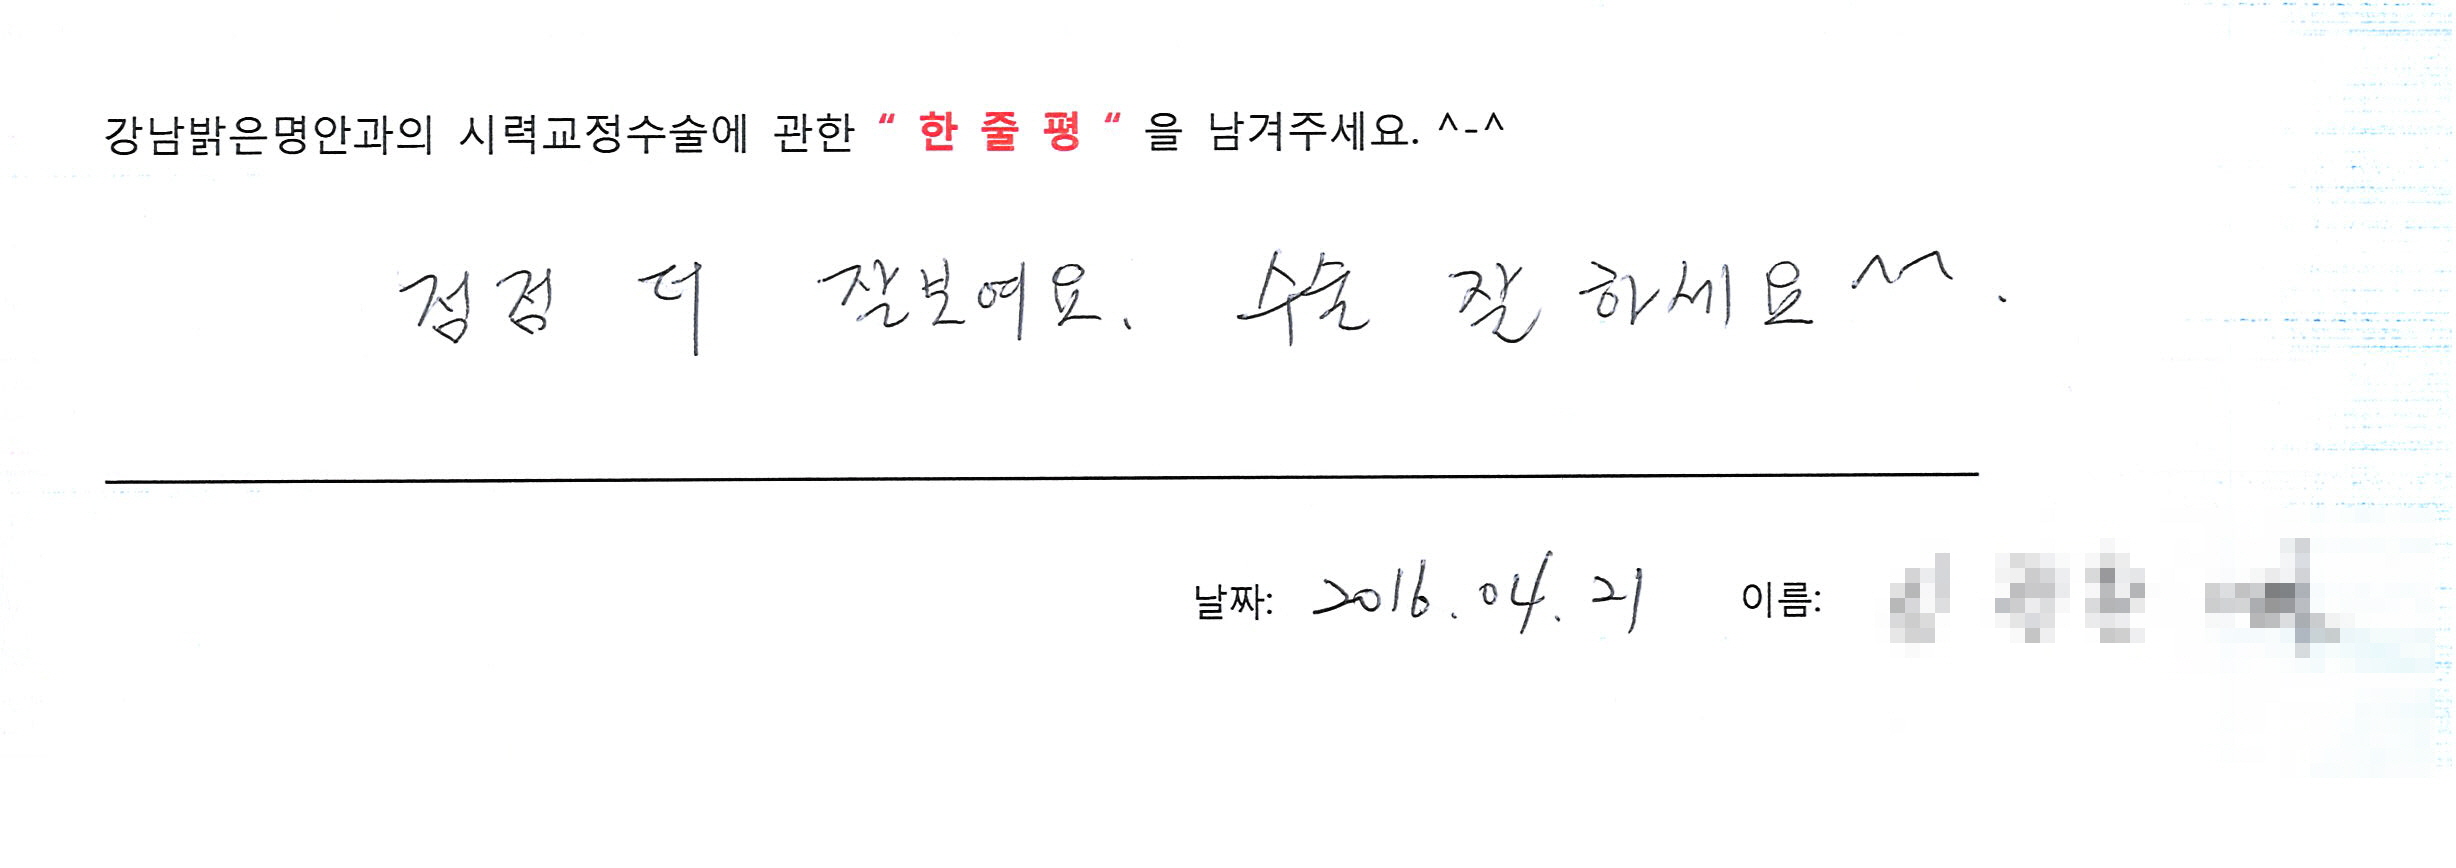 강남밝은명안과의 시력교정수술에 관한 “ 한 줄 평 “ 을 남겨주세요. ^-^
점점 더 잘보여요. 수술 잘 하세요 ^^.
날짜: 2016.04.21 이름: